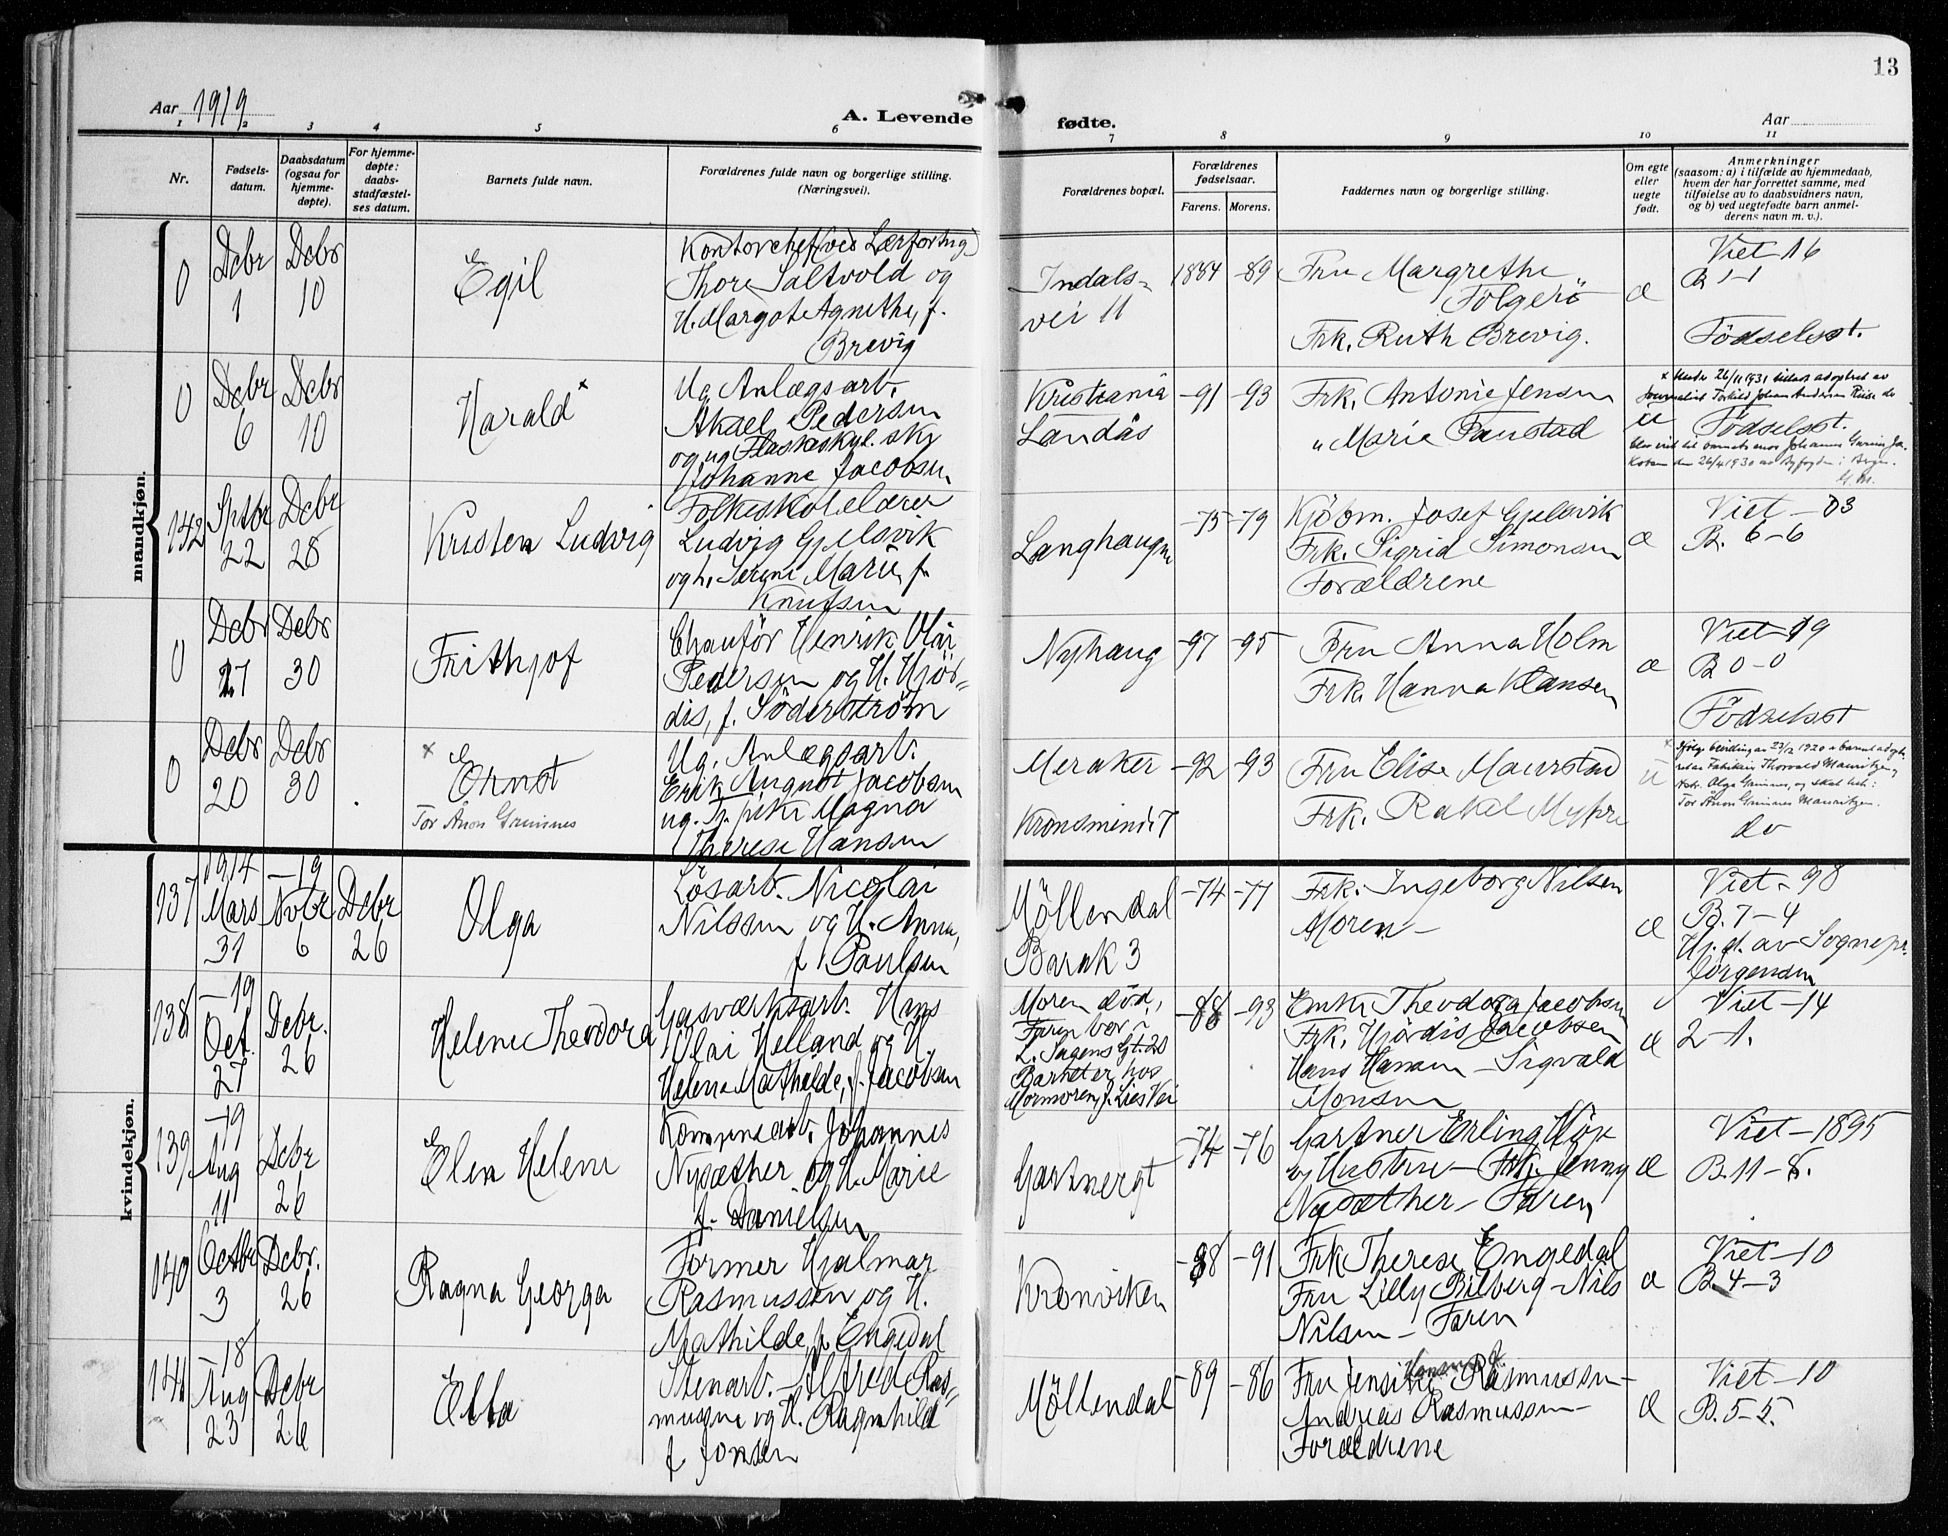 13
Aar 1919
A. Levende
fødte.
Aar
1 2 3 4 5 6
7 8 9 10 11
Nr.
Fødsels-
datum.
Daabsdatum
(ogsaa for
hjemme-
døpte).
For hjemme-
døpte:
daabs-
stadfæstel-
ses datum.
Barnets fulde navn.
Forældrenes fulde navn og borgerlige stilling.
(Næringsvei).
Forældrenes bopæl.
Forældrenes
fødselsaar.
Farens. Morens.
Faddernes navn og borgerlige stilling.
Om egte
eller
uegte
født.
Anmerkninger
(saasom: a) i tilfælde av hjemmedaab,
hvem der har forrettet samme, med
tilføielse av to daabsvidners navn,
og b) ved uegtefødte barn anmel-
derens navn m. v.).
mandkjøn.
0
Dcbr
1
Dcbr
10
Egil
Kontorchef (ved
Thore Saltvold og
H. Margot Agnethe, f.
Brevig
Indals-
vei 11
1884 -89
Fru Margrethe
Folgerö
Frk. Ruth Brevig.
æ
Viet -16
B 1-1
Fødselsst.
0
Dcbr
6
Dcbr
10
Harald x
Ug. Anlægsarb.
Aksel Pedersen
og ug.
Johanne Jacobsen
Kristiania
Landås
-91 -93
Frk. Antonie Jensen
" Marie Faustad
u
x Under 26/11 1931 tillatt adoptert av
Journalist Torkild Johan Andersen
Fødselsst.
142
Sptbr
22
Dcbr
28
Kristen Ludvig
Folkeskolelærer
Ludvig Gjelsvik
og h. Serine Marie, f.
Knutsen
Langhaugen
-75 -79
Kjöbm. Josef Gjelsvik
Frk. Sigrid Simonsen
Forældrene
æ
Viet -03
B. 6-6
0
Dcbr
17
Dcbr
30
Frithjof
Chauför Henrik Olai
Pedersen og H. Hjör-
dis, f. Söderström
Nyhaug
-97 -95
Fru Anna Holm
Frk. Hanna Hansen
æ
Viet -19
B 0-0
Fødselsst
0
Dcbr
20
Dcbr
30
x Ernst
Tor Ånon Grimnes
Ug. Anlægsarb.
Erik August Jacobsen
ug. Tj. pike Magna
Therese Hansen
Meraker
Kronsmindet 7
-92 -93
Fru Elise Maurstad
Frk. Rakel Myhre
u
x Ifølge bevilling av 23/2 1920 er barnet adop-
Thorvald Mauritzen
Olga Grimnes, og skal hete:
Tor Ånon Grimnes Mauritzen.
do
kvindekjøn.
137
1914
Mars
31
-19
Novbr
6
Dcbr
26
Olga
Lösarb. Nicolai
Nilssen og H. Anna,
f. Paulsen
Möllendal
Barak 3
-74 -77
Frk. Ingeborg Nilsen
Moren-
æ
Viet - 98
B. 7-4
Hj. d. av Sognepr.
Jörgensen
138
-19
Oct.
27
Dcbr.
26
Helene Theodora
Gasværksarb. Hans
Olai Helland og H.
Helene Mathilde, f. Jacobsen
Moren död,
Faren bor
L. Sagens Gt. 28
Barnet er hos
Mormoren, J. Lies Vei
-88 -93
Enke Theodora Jacobsen
Frk. Hjördis Jacobsen
Hans Hansen - Sigvald
Monsen
æ
Viet -14
2-1.
139
-19
Aug
11
Dcbr
26
Elen Helene
Johannes
Nysæther og H. Marie
f. Danielsen
-74 -76
Gartner Erling Höje
og Hustru - Frk. Jenny
Nysæther - Faren
æ
Viet -1895
B. 11-8.
140
Octbr
3
Dcbr.
26
Ragna Georga
Former Hjalmar
Rasmussen og H.
Mathilde, f. Engedal
Kronviken
-88 -91
Frk Therese Engedal
Fru Lilly Bilberg - Nils
Nilsen - Faren
æ
Viet -10
B. 4-3
141
-18
Aug
23
Dcbr
26
Ella
Stenarb. Alfred Ras-
mussen og H. Ragnhild
f. Jonsen
Möllendal
-89 -86
Fru Jensine Rasmussen -
Andreas Rasmussen -
Forældrene
æ
Viet -10
B. 5-5.